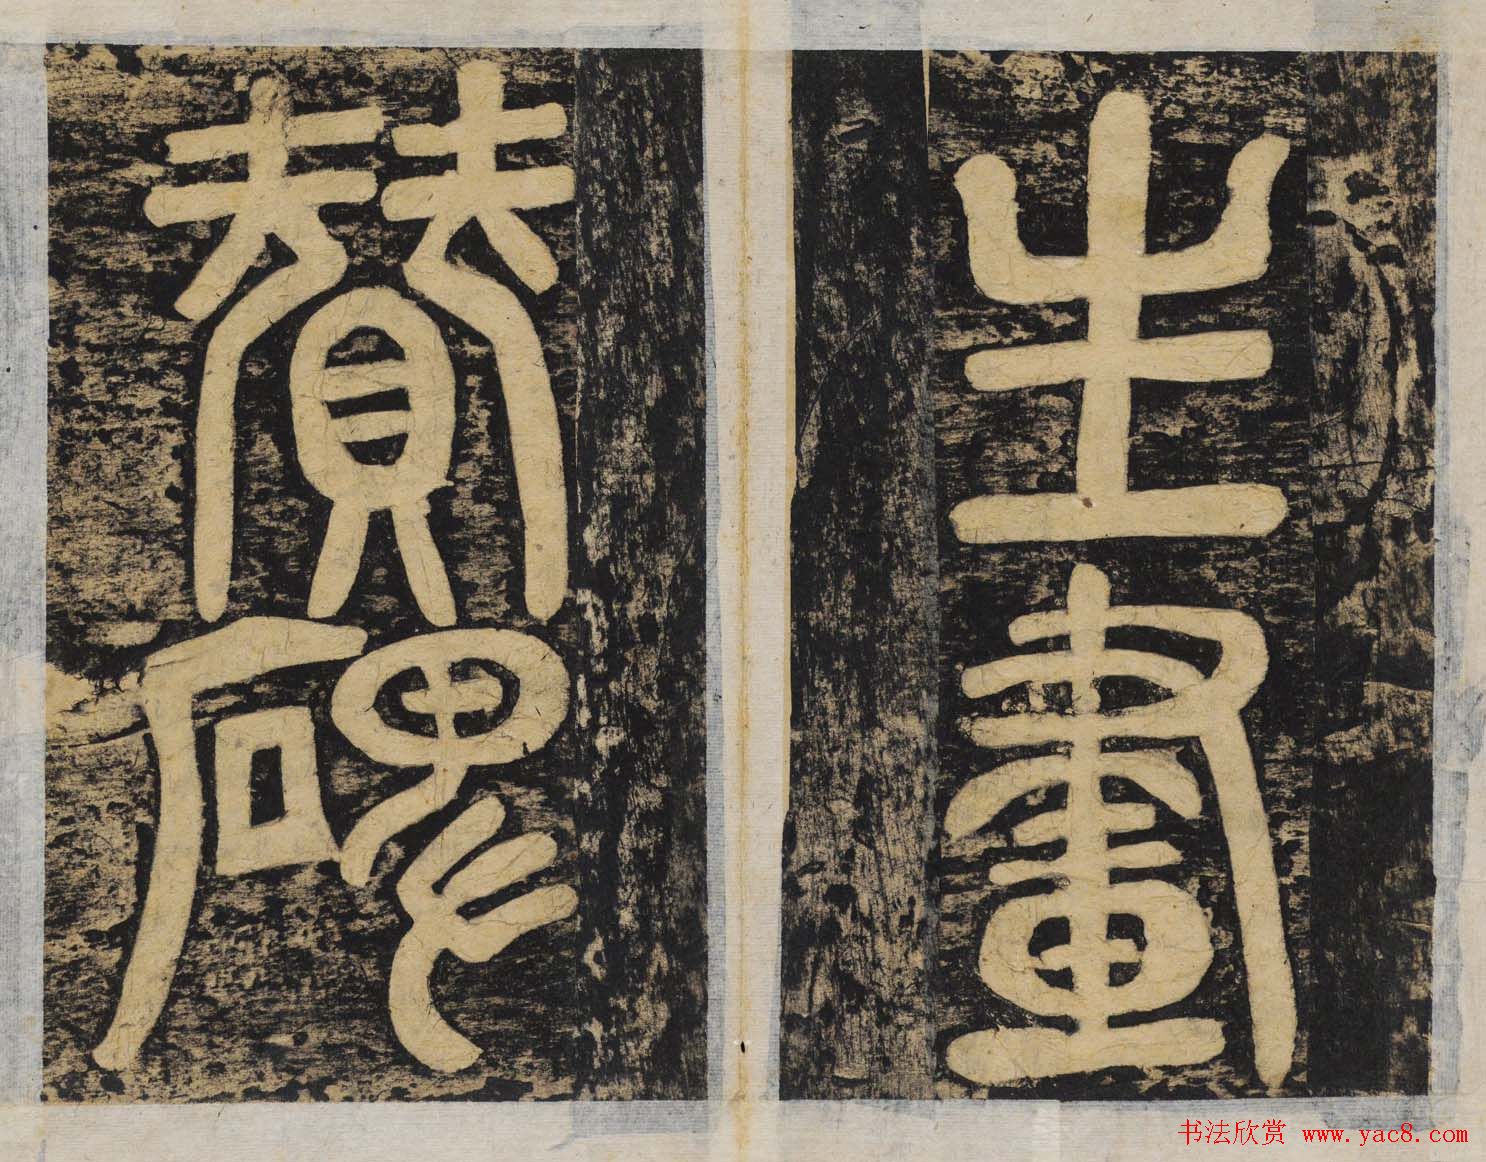 生畫
贊碑
书法欣赏 www.yac8.com